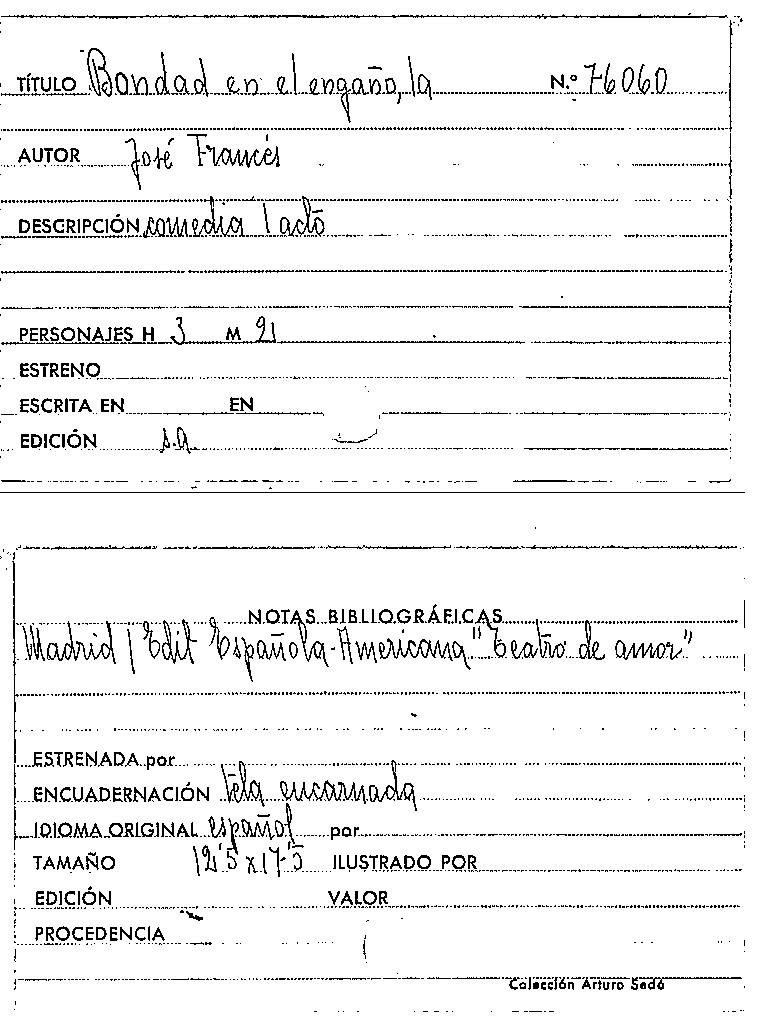 TÍTULO Bondad en el engaño, la N.º 76060
AUTOR José Francés
DESCRIPCIÓN comedia 1 acto
PERSONAJES H 3 M
ESTRENO
ESCRITA EN EN
EDICIÓN s.a.
NOTAS BIBLIOGRÁFICAS
Madrid / Edit Española-Americana "Teatro de amor"
ESTRENADA por
ENCUADERNACIÓN tela encarnada
IDIOMA ORIGINAL español por
TAMAÑO 12'5 x 17'5 ILUSTRADO POR
EDICIÓN VALOR
PROCEDENCIA
Colección Arturo Sedó